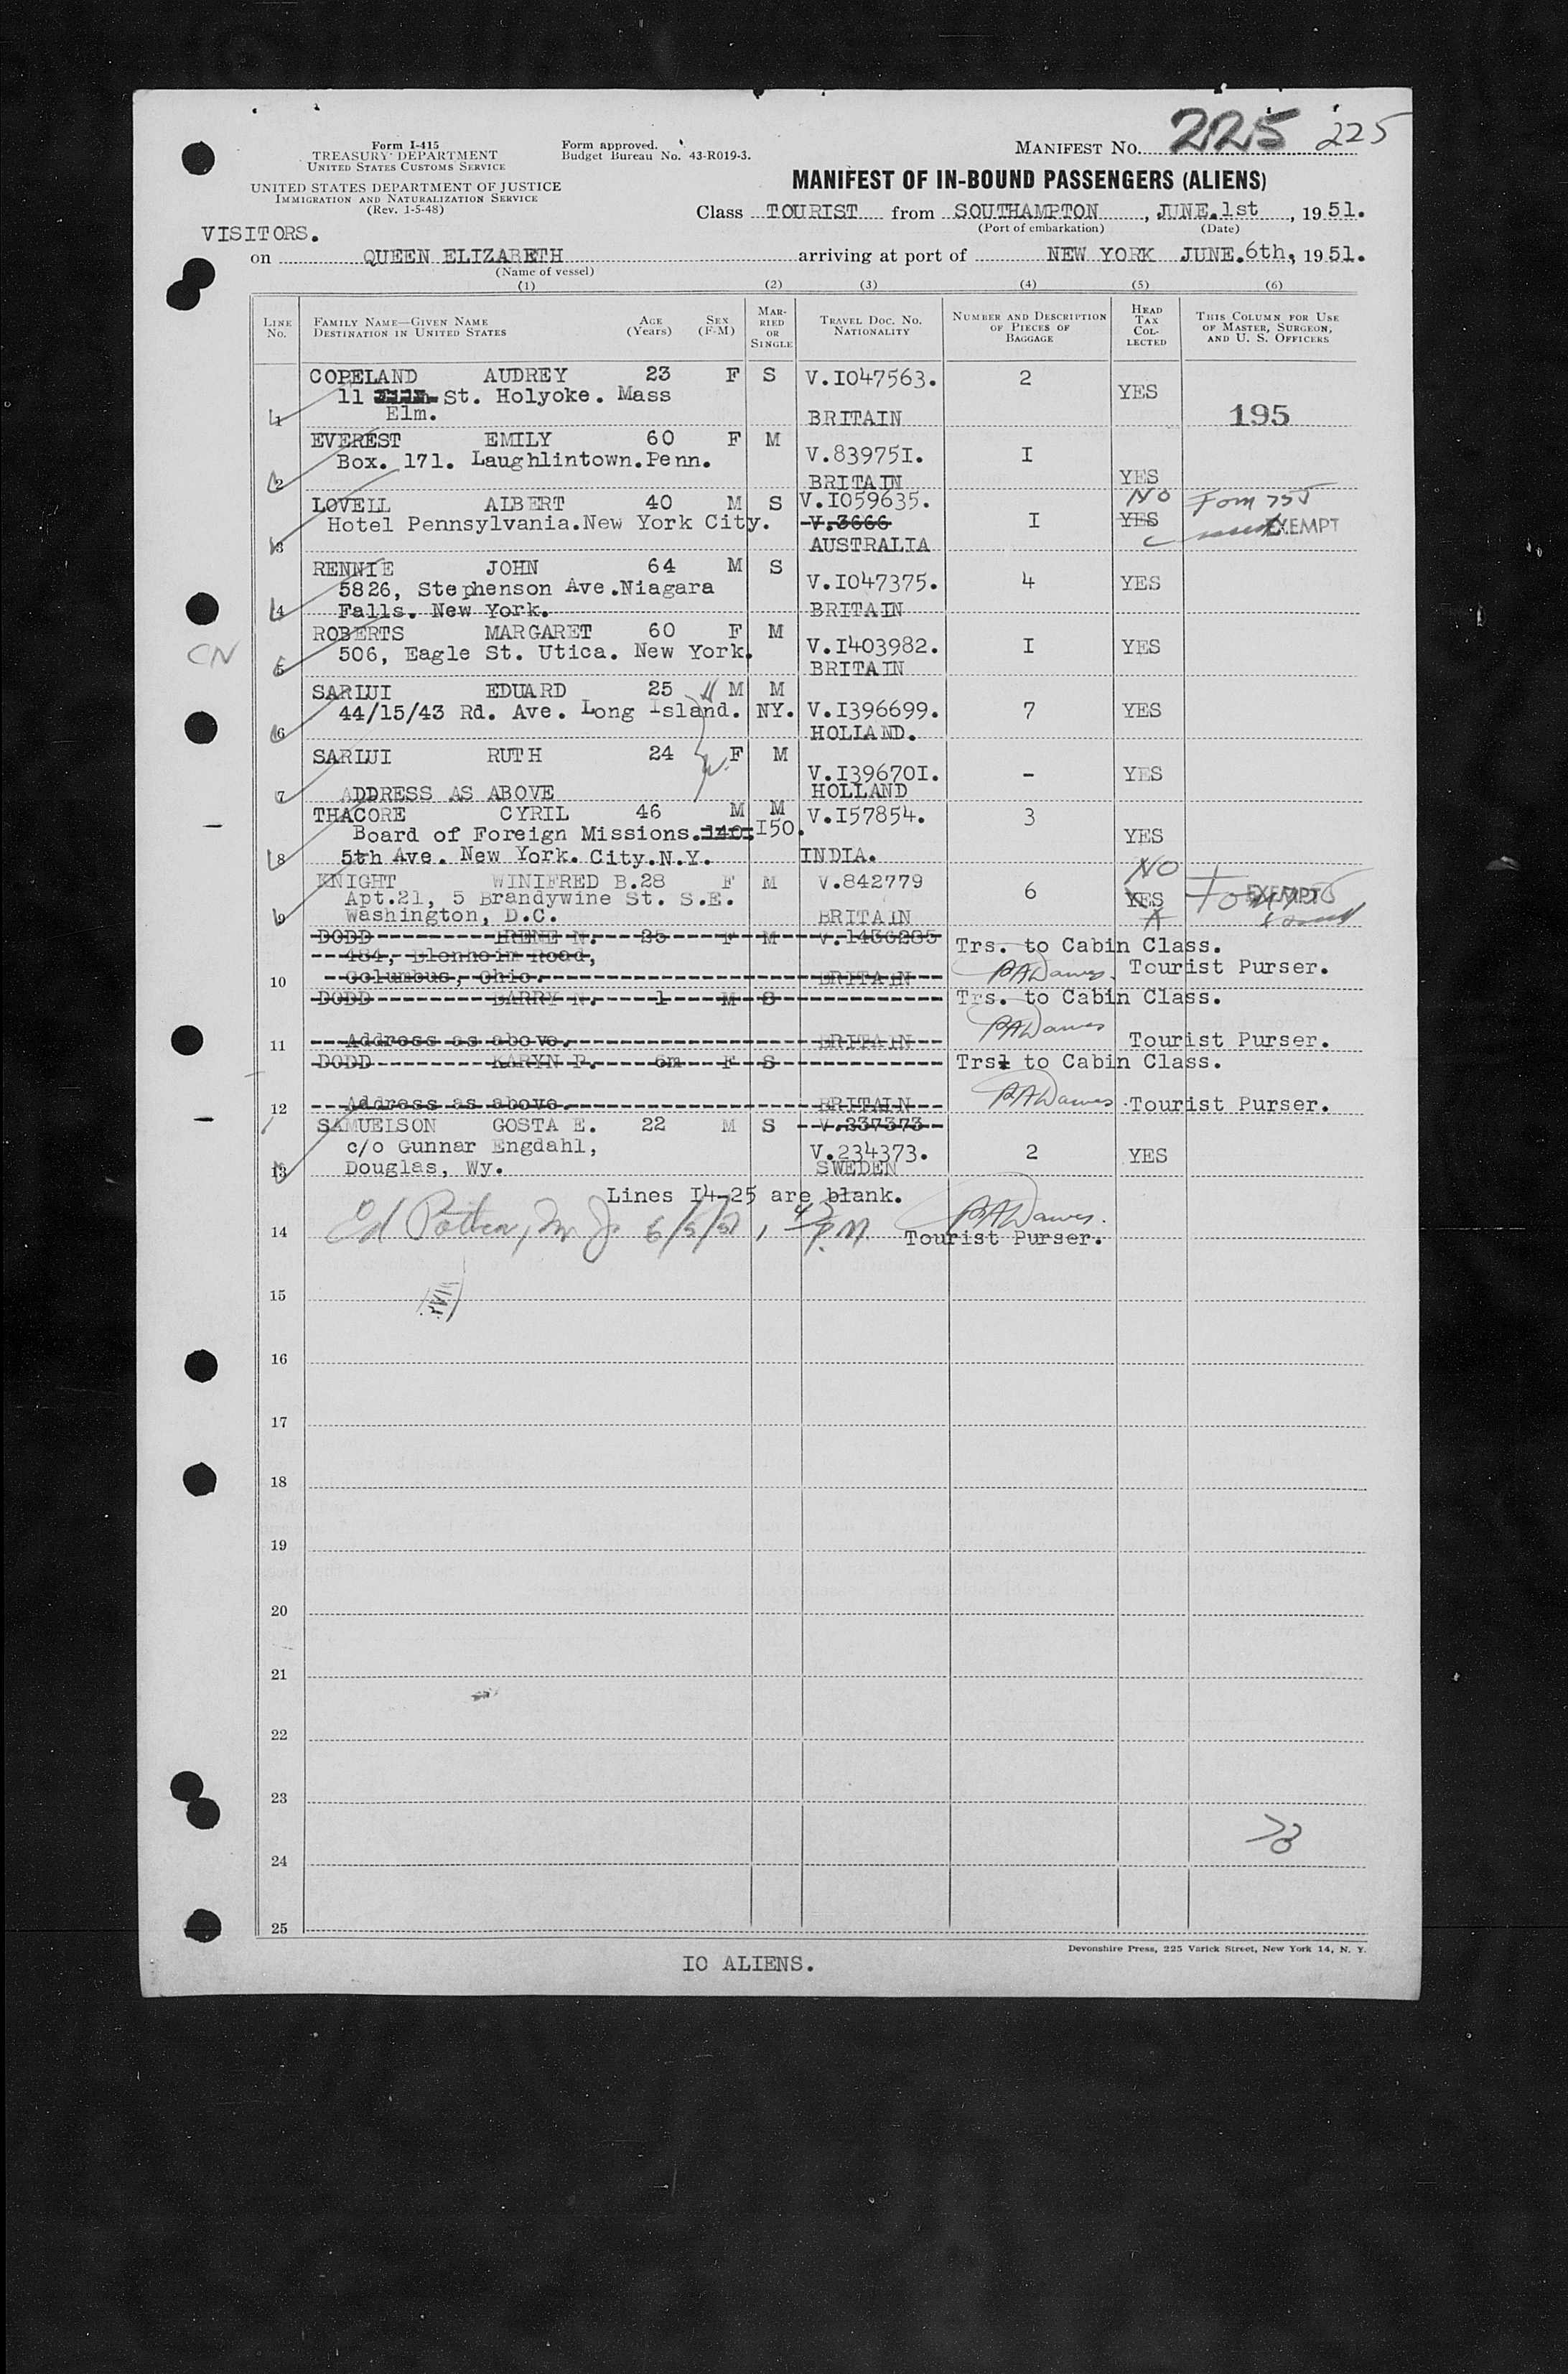 225 225
Form I-415
TREASURY DEPARTMENT
UNITED STATES CUSTOMS SERVICE
Form approved.
Budget Bureau No. 43-R019-3.
MANIFEST NO.
UNITED STATES DEPARTMENT OF JUSTICE
IMMIGRATION AND NATURALIZATION SERVICE
(Rev. 1-5-48)
MANIFEST OF IN-BOUND PASSENGERS (ALIENS)
Class TOURIST from SOUTHAMPTON, JUNE.1st, 1951.
(Port of embarkation) (Date)
VISITORS.
on QUEEN ELIZABETH arriving at port of NEW YORK JUNE.6th, 1951.
(Name of vessel)
(1) (2) (3) (4) (5) (6)
LINE NO.
FAMILY NAME—GIVEN NAME
DESTINATION IN UNITED STATES
AGE (Years)
SEX (F-M)
MARRIED OR SINGLE
TRAVEL DOC. NO.
NATIONALITY
NUMBER AND DESCRIPTION OF PIECES OF BAGGAGE
HEAD TAX COLLECTED
THIS COLUMN FOR USE OF MASTER, SURGEON, AND U. S. OFFICERS
COPELAND AUDREY 23 F S V.I047563. 2
11 St. Holyoke. Mass YES
1 Elm. BRITAIN 195
EVEREST EMILY 60 F M V.83975I. I
Box. 171. Laughlintown.Penn.
2 BRITAIN YES
LOVELL ALBERT 40 M S V.I059635. NO Form 755
Hotel Pennsylvania.New York City. V.3666 I YES EXEMPT
3 AUSTRALIA
RENNIE JOHN 64 M S
5826, Stephenson Ave.Niagara V.I047375. 4 YES
4 Falls. New York. BRITAIN
ROBERTS MARGARET 60 F M
CN 506, Eagle St. Utica. New York. V.I403982. I YES
5 BRITAIN
SARLUI EDUARD 25 M M
44/15/43 Rd. Ave. Long Island. NY. V.I396699. 7 YES
6 HOLLAND.
SARLUI RUTH 24 F M
V.I39670I. - YES
7 ADDRESS AS ABOVE HOLLAND
THACORE CYRIL 46 M M V.I57854. 3
Board of Foreign Missions. 140. I50. YES
8 5th Ave. New York. City.N.Y. INDIA.
KNIGHT WINIFRED B.28 F M V.842779 NO
Apt.21, 5 Brandywine St. S.E. 6 YES EXEMPT
9 Washington, D.C. BRITAIN
DODD IRENE N. 25 F M V.1436285 Trs. to Cabin Class.
484, Blenheim Road, RADawes. Tourist Purser.
10 Columbus, Ohio. BRITAIN
DODD BARRY N. 1 M S Trs. to Cabin Class.
RADawes
11 Address as above. BRITAIN Tourist Purser.
DODD KARYN P. 6m F S Trs. to Cabin Class.
12 Address as above. BRITAIN RADawes Tourist Purser.
SAMUELSON GOSTA E. 22 M S V.237373
c/o Gunnar Engdahl, V.234373. 2 YES
13 Douglas, Wy. SWEDEN
Lines I4-25 are blank.
RADawes.
14 Tourist Purser.
15
16
17
18
19
20
21
22
23
24
25
Devonshire Press, 225 Varick Street, New York 14, N. Y.
IO ALIENS.